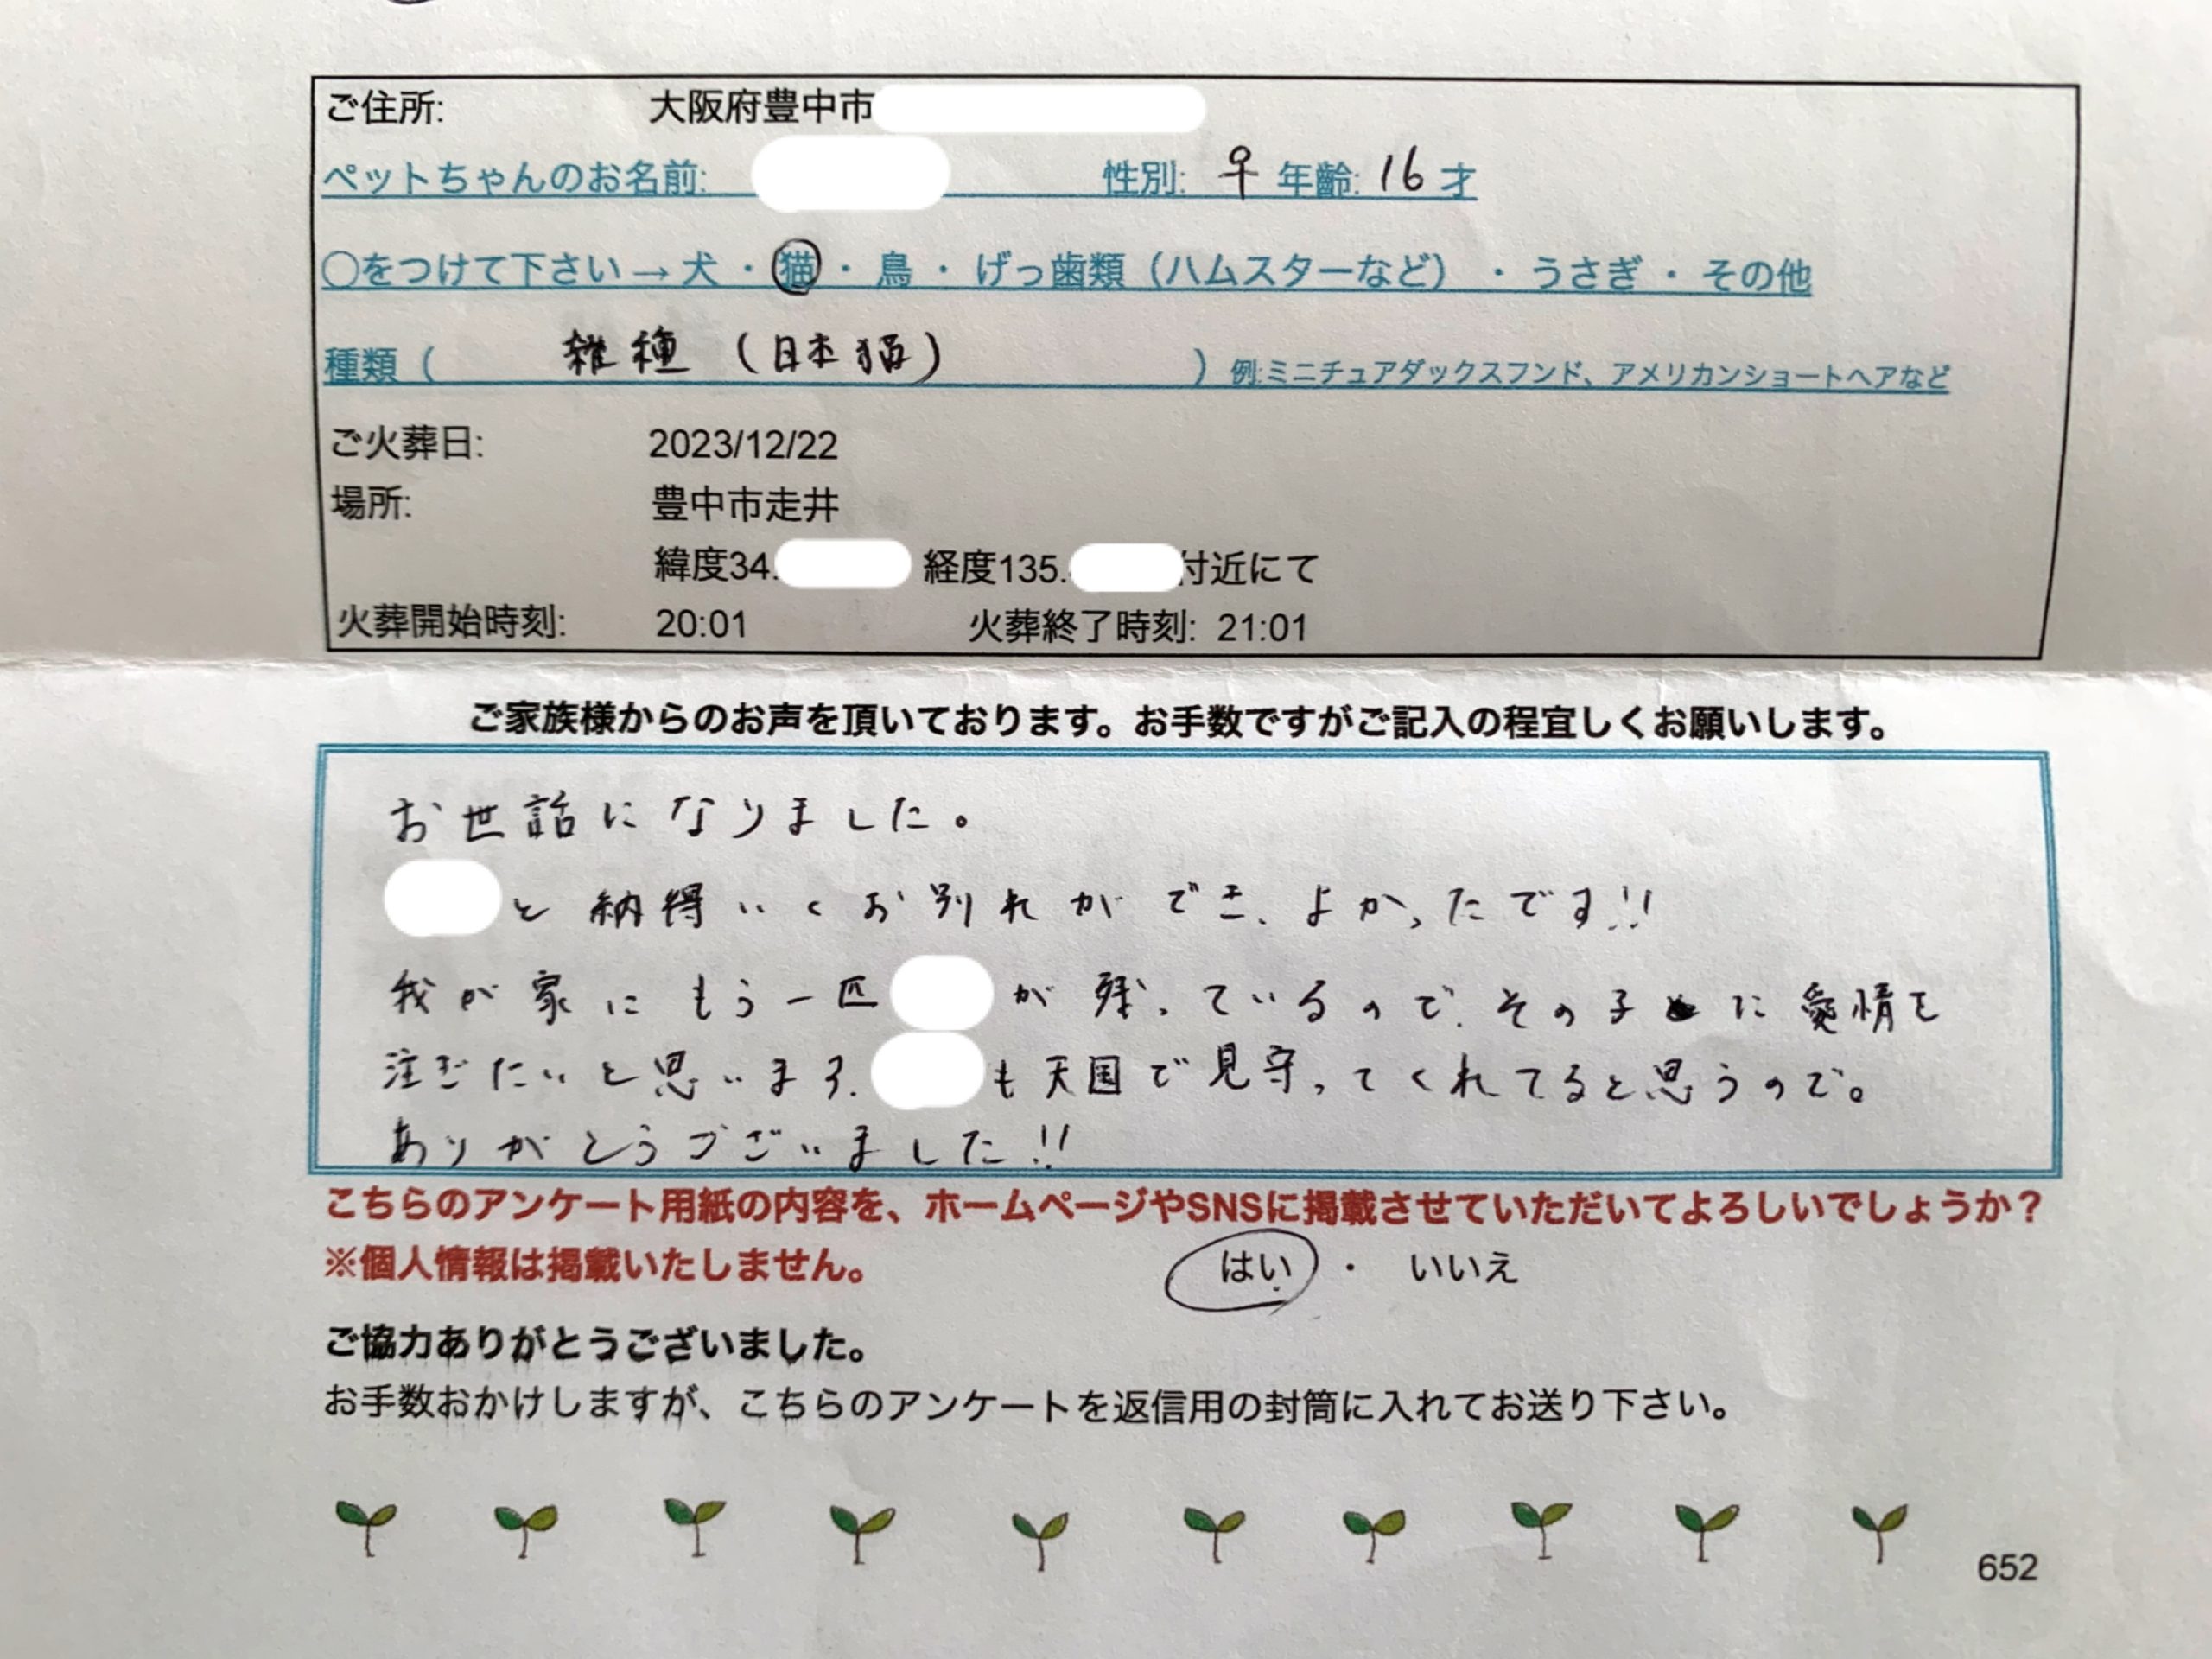 ご住所: 大阪府豊中市
ペットちゃんのお名前: 性別: ♀ 年齢: 16才
○をつけて下さい→犬・猫・鳥・げっ歯類（ハムスターなど）・うさぎ・その他
種類（ 雑種（日本猫） ）例:ミニチュアダックスフンド、アメリカンショートヘアなど
ご火葬日: 2023/12/22
場所: 豊中市走井
緯度34. 経度135. 付近にて
火葬開始時刻: 20:01 火葬終了時刻: 21:01
ご家族様からのお声を頂いております。お手数ですがご記入の程宜しくお願いします。
お世話になりました。
と納得いくお別れができ、よかったです!!
我が家にもう一匹 が残っているので、その子に愛情を
注ぎたいと思います。 も天国で見守ってくれてると思うので。
ありがとうございました!!
こちらのアンケート用紙の内容を、ホームページやSNSに掲載させていただいてよろしいでしょうか？
※個人情報は掲載いたしません。 はい ・ いいえ
ご協力ありがとうございました。
お手数おかけしますが、こちらのアンケートを返信用の封筒に入れてお送り下さい。
652